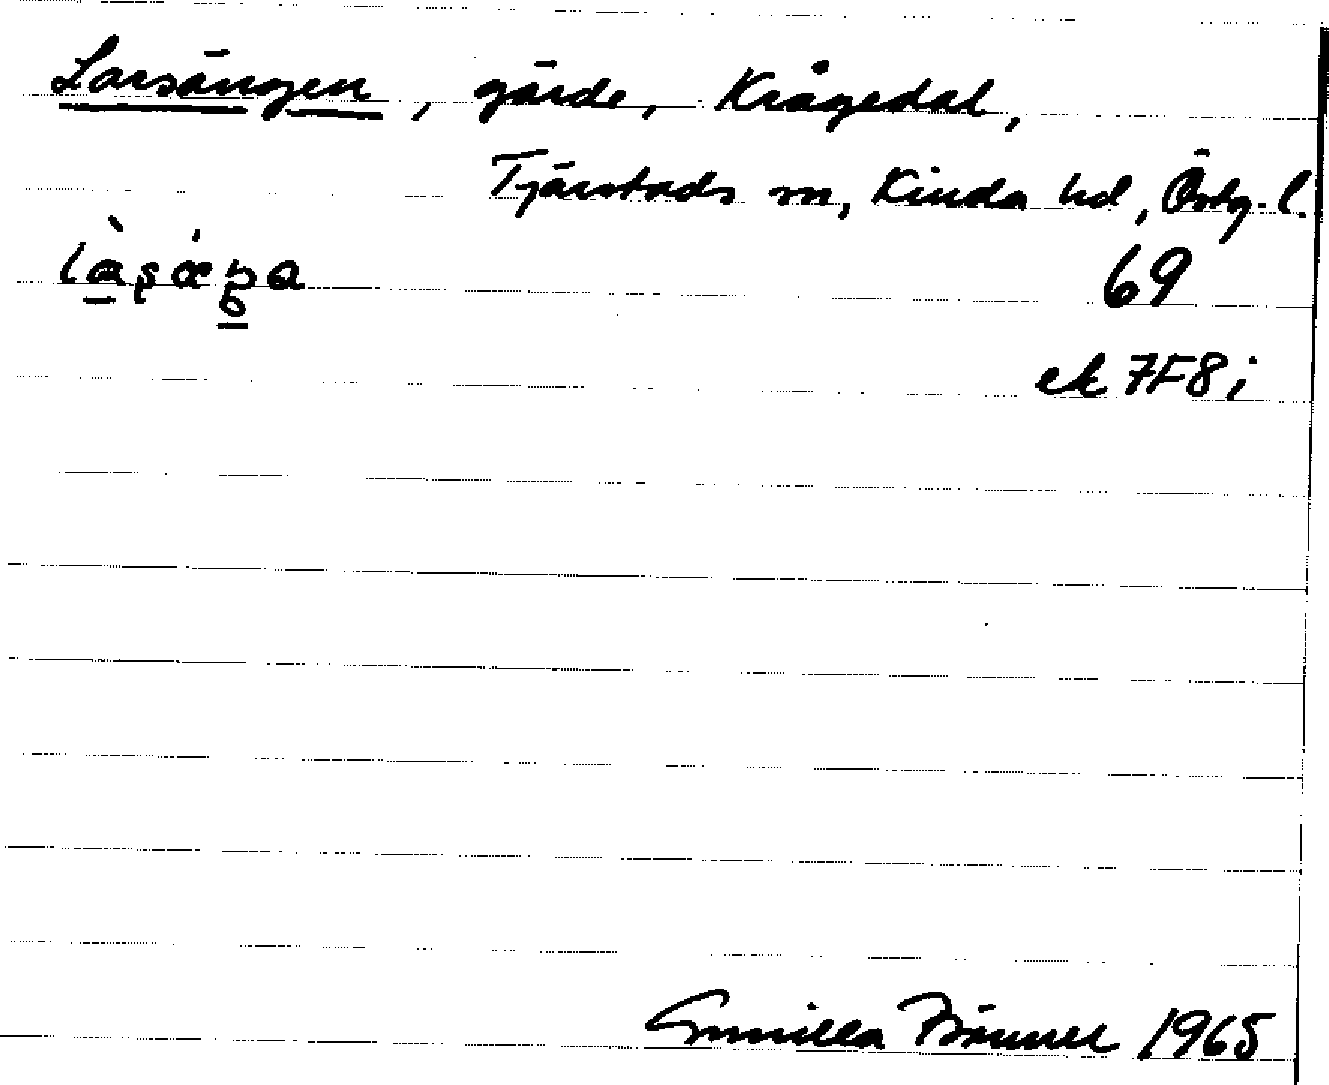 Larsängen, gärde, Krågedal,
Tjärstads sn, Kinda hd, Östg. l.
69
ek 7F8i
Gunilla 1965